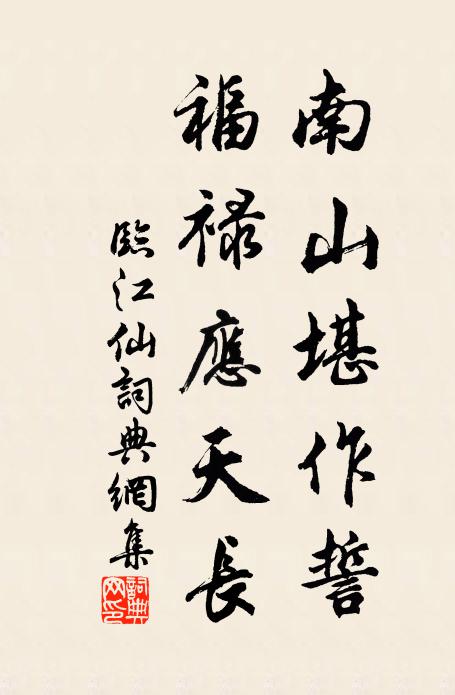 南山堪作誓
福禄應天長
臨江仙詞典網集
詞典網印